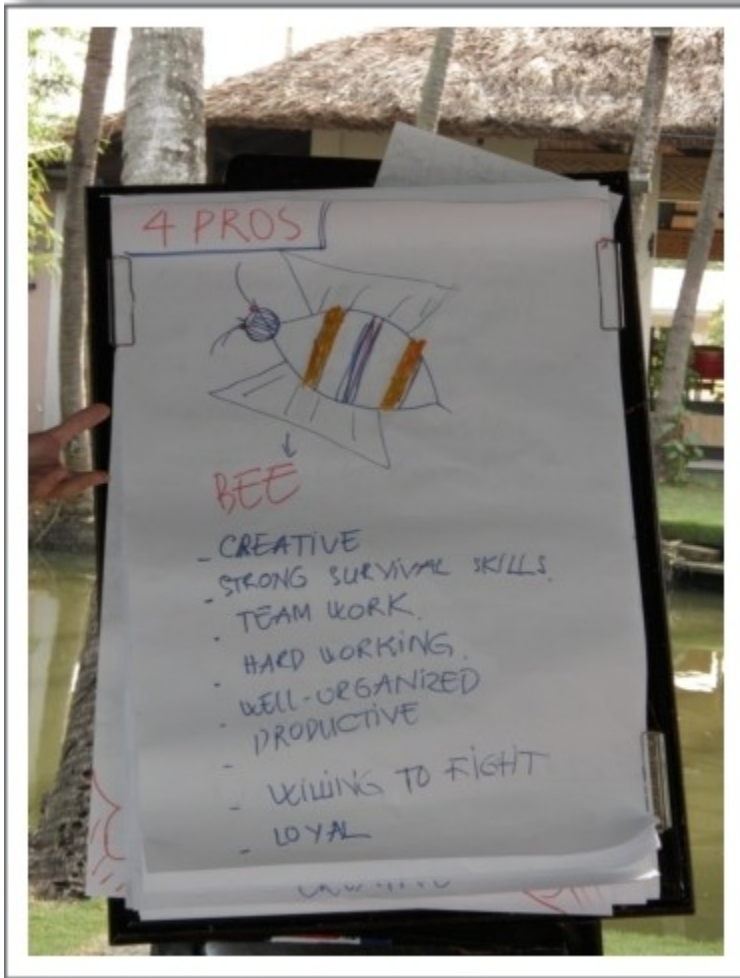 4 PROS
BEE
- CREATIVE
- STRONG SURVIVAL SKILLS.
- TEAM WORK.
- HARD WORKING.
- WELL-ORGANIZED
- PRODUCTIVE
- WILLING TO FIGHT
- LOYAL